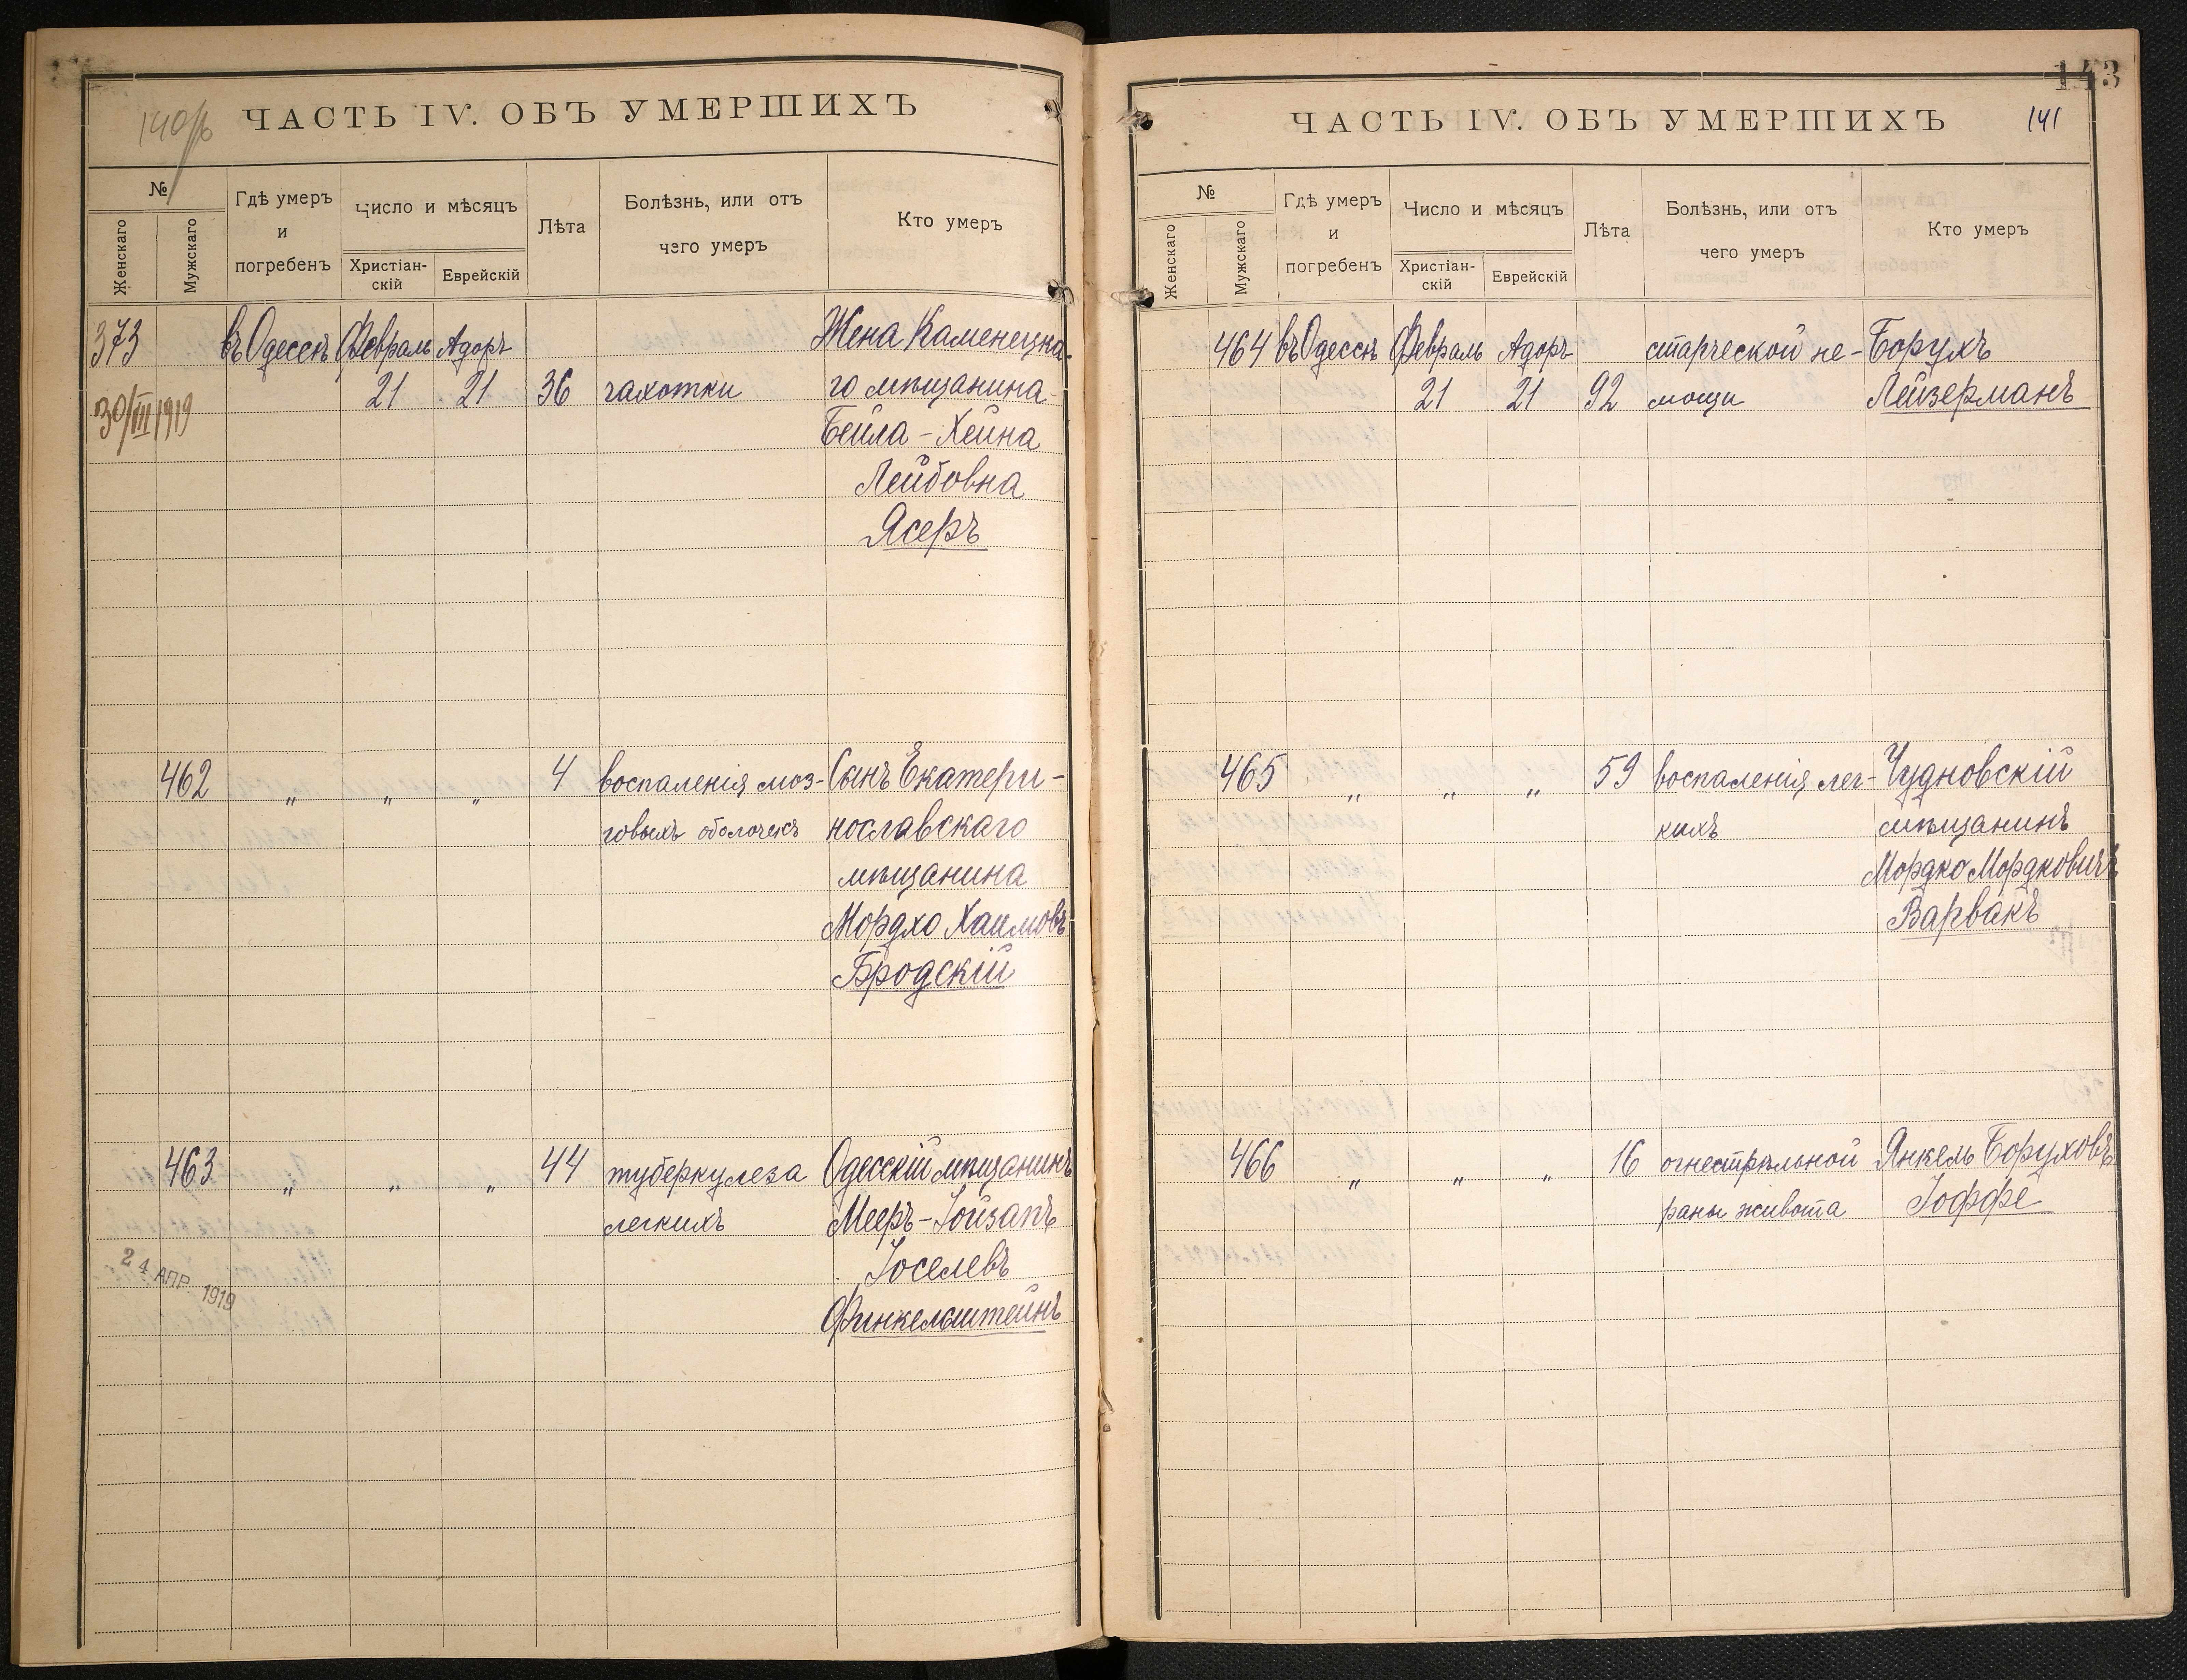 140/б
ЧАСТЬ IV. ОБЪ УМЕРШИХЪ
№
Женскаго
Мужскаго
Гдѣ умеръ
и
погребенъ
Число и мѣсяцъ
Христіан-
скій
Еврейскій
Лѣта
Болѣзнь, или отъ
чего умеръ
Кто умеръ
373 въ Одессѣ Февраль Адоръ Жена Каменецка-
21 21 36 чахотки го мѣщанина
30/III 1919
Бейла-Хейна
Лейбовна
Ясеръ
462 „ „ „ 4 воспаленія моз- Сынъ Екатери-
говыхъ оболочекъ нославскаго
мѣщанина
Мордхо Хаимовъ
Бродскій
463 „ „ „ 44 туберкулеза Одесскій мѣщанинъ
легкихъ Мееръ-Іойзапъ
Іоселевъ
24 АПР. 1919
Финкельштейнъ
143
ЧАСТЬ IV. ОБЪ УМЕРШИХЪ 141
№
Женскаго
Мужскаго
Гдѣ умеръ
и
погребенъ
Число и мѣсяцъ
Христіан-
скій
Еврейскій
Лѣта
Болѣзнь, или отъ
чего умеръ
Кто умеръ
464 въ Одессѣ Февраль Адоръ старческой не- Борухъ
21 21 92 мощи Лейзерманъ
465 „ „ „ 59 воспаленія лег- Чудновскій
кихъ мѣщанинъ
Мордко Мордковичъ
Варвакъ
466 „ „ „ 16 огнестрѣльной Янкель Боруховъ
раны живота Іоффе